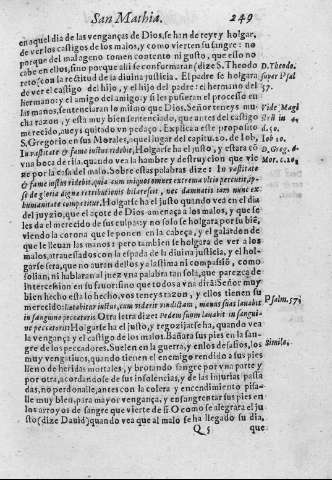 San Mathia. 249
en aquel dia de las venganças de Dios, se han de reyr y holgar,
de ver los castigos de los malos, y como vierten su sangre: no
porque del mal ageno tomen contento ni gusto, que esso no
cabe en ellos, sino porque alli se conforman (dize S. Theodo
reto) con la rectitud de la diuina justicia. El padre se holgara
de ver el castigo del hijo, y el hijo del padre: el hermano del
hermano: y el amigo del amigo: y si les pusieran el processo en
las manos, sentenciaran lo mismo que Dios. Señor teneys mu-
cha razon, y esta muy bien sentenciado, que antes del castigo
merecido, aueys quitado vn pedaço. Explica a este proposito
S. Gregorio en sus Morales, aquel lugar del capit. 20. de Iob,
In vastitate & fame iustus ridebit, Holgarse ha el justo, y estara cō
vna boca de risa, quando vea la hambre y destruycion que vie
ne por la casa del malo. Sobre estas palabras dize: In vastitate
& fame iustus ridebit, quia cum iniquos omnes extrema vltio percutit, ip-
se de gloria dignæ retributionis hilarescit, nec damnatis iam nunc ex
humanitate compatitur, Holgarse ha el justo quando vea en el dia
del juyzio, que el açote de Dios amenaça a los malos, y que se
les da el merecido de sus culpas: y no solo se holgara por su biē,
viendo la corona que le ponen en la cabeça, y el galardon de
que le lleuan las manos: pero tambien se holgara de ver a los
malos, atrauessados con la espada de la diuina justicia, y el hol-
garse sera, que no auran dellos y a lastima ni compassiō, como
solian, ni hablaran al juez vna palabra tan sola, que parezca de
intercession en su fauor: sino que todos a vna dirā: Señor muy
bien hecho esta lo hecho, vos teneys razon, y ellos tienen su
merecido: Laetabitur iustus, cum viderit vindictam, manus suas lauabit
in sanguine peccatoris. Otra letra dize: Pedem suum lauabit in sangui-
ne peccatoris. Holgarse ha el justo, y regozijarse ha, quando vea
la vengança y el castigo de los malos. Bañara sus pies en la san-
gre de los peccadores. Suelen en la guerra, y en los desafios, los
muy vengatiuos, quando tienen el enemigo rendido a sus pies
lleno de heridas mortales, y brotando sangre por vna parte y
por otra, acordandose de sus insolencias, y de las injurias passa
das, no perdonalle, antes con la colera y encendimiento pisa-
lle muy bien, para mayor vengança, y ensangrentar sus pies en
los arroyos de sangre que vierte de si. O como se alegrara el ju
sto (dize Dauid) quando vea que al malo se ha llegado su dia,
Q 5 que
D. Theodo.
super Psal
57.
Vide Magi
Iob 20.
D. Greg.
Psalm. 57.
Simile.